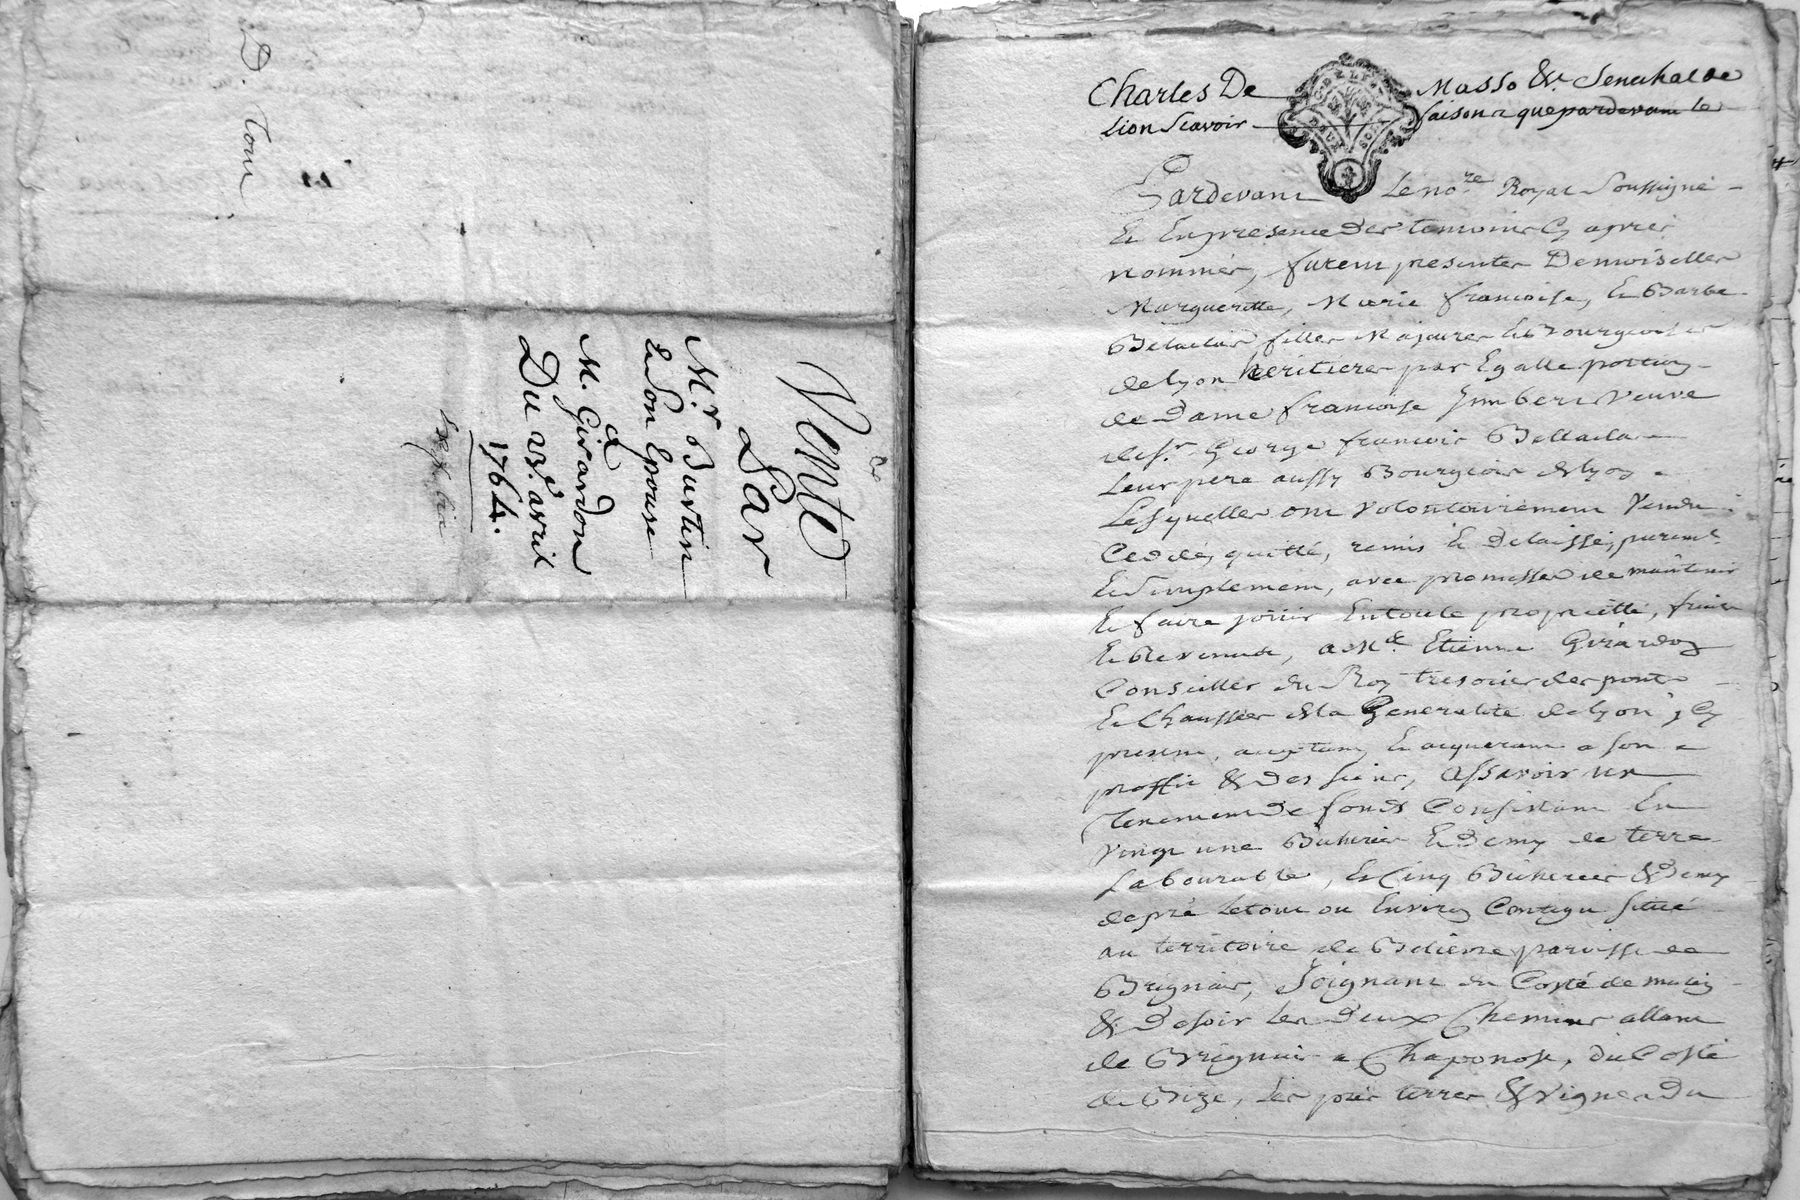 D. Tour
Vente
Par
M.r Burtin
& Son Epouse
a
M. Girardon
Du 23.e avril
1764.
Charles De Masso &c. Senechal de
Lion Scavoir faisons que pardevant les
GEN DE LION
DEUX SOLS
Pardevant Le no.re Royal Soussigné
Et En presence Des temoins Cy aprés
nommés, furent presentes Demoiselles
Margueritte, Marie francoise, Et Barbe
filles Majeures Et Bourgeoises
de Lyon heritieres par Egalle portion
de Dame francoise Imbert Veuve
de S.r George francois
Leur pere aussy Bourgeois de Lyon
Lesquelles ont volontairement Vendu
Cedé, quitté, remis Et Delaissé, purem.t
Et Simplement, avec promesse de maintenir
Et faire joüir En toute proprieté, fruits
Et Revenus, a M.e Etienne Girardon
Conseiller du Roy tresorier des ponts
Et Chaussées de la Generalité de Lyon, Cy
present, acceptant, Et acquerant a son
proffit & Des siens, Assavoir un
tenement De fonds Consistant En
vingt une Bicherées Et Demy de terre
Labourable, Et Cinq Bicherées & Demy
de pré Le tout ou Environ Contigu Situé
au territoire de parroisse de
Brignais, Joignant du Costé de matin
& De soir Les Deux Chemins allant
de Brignais a Chaponost, du Costé
de Bize, Les prés terres & Vignes Du